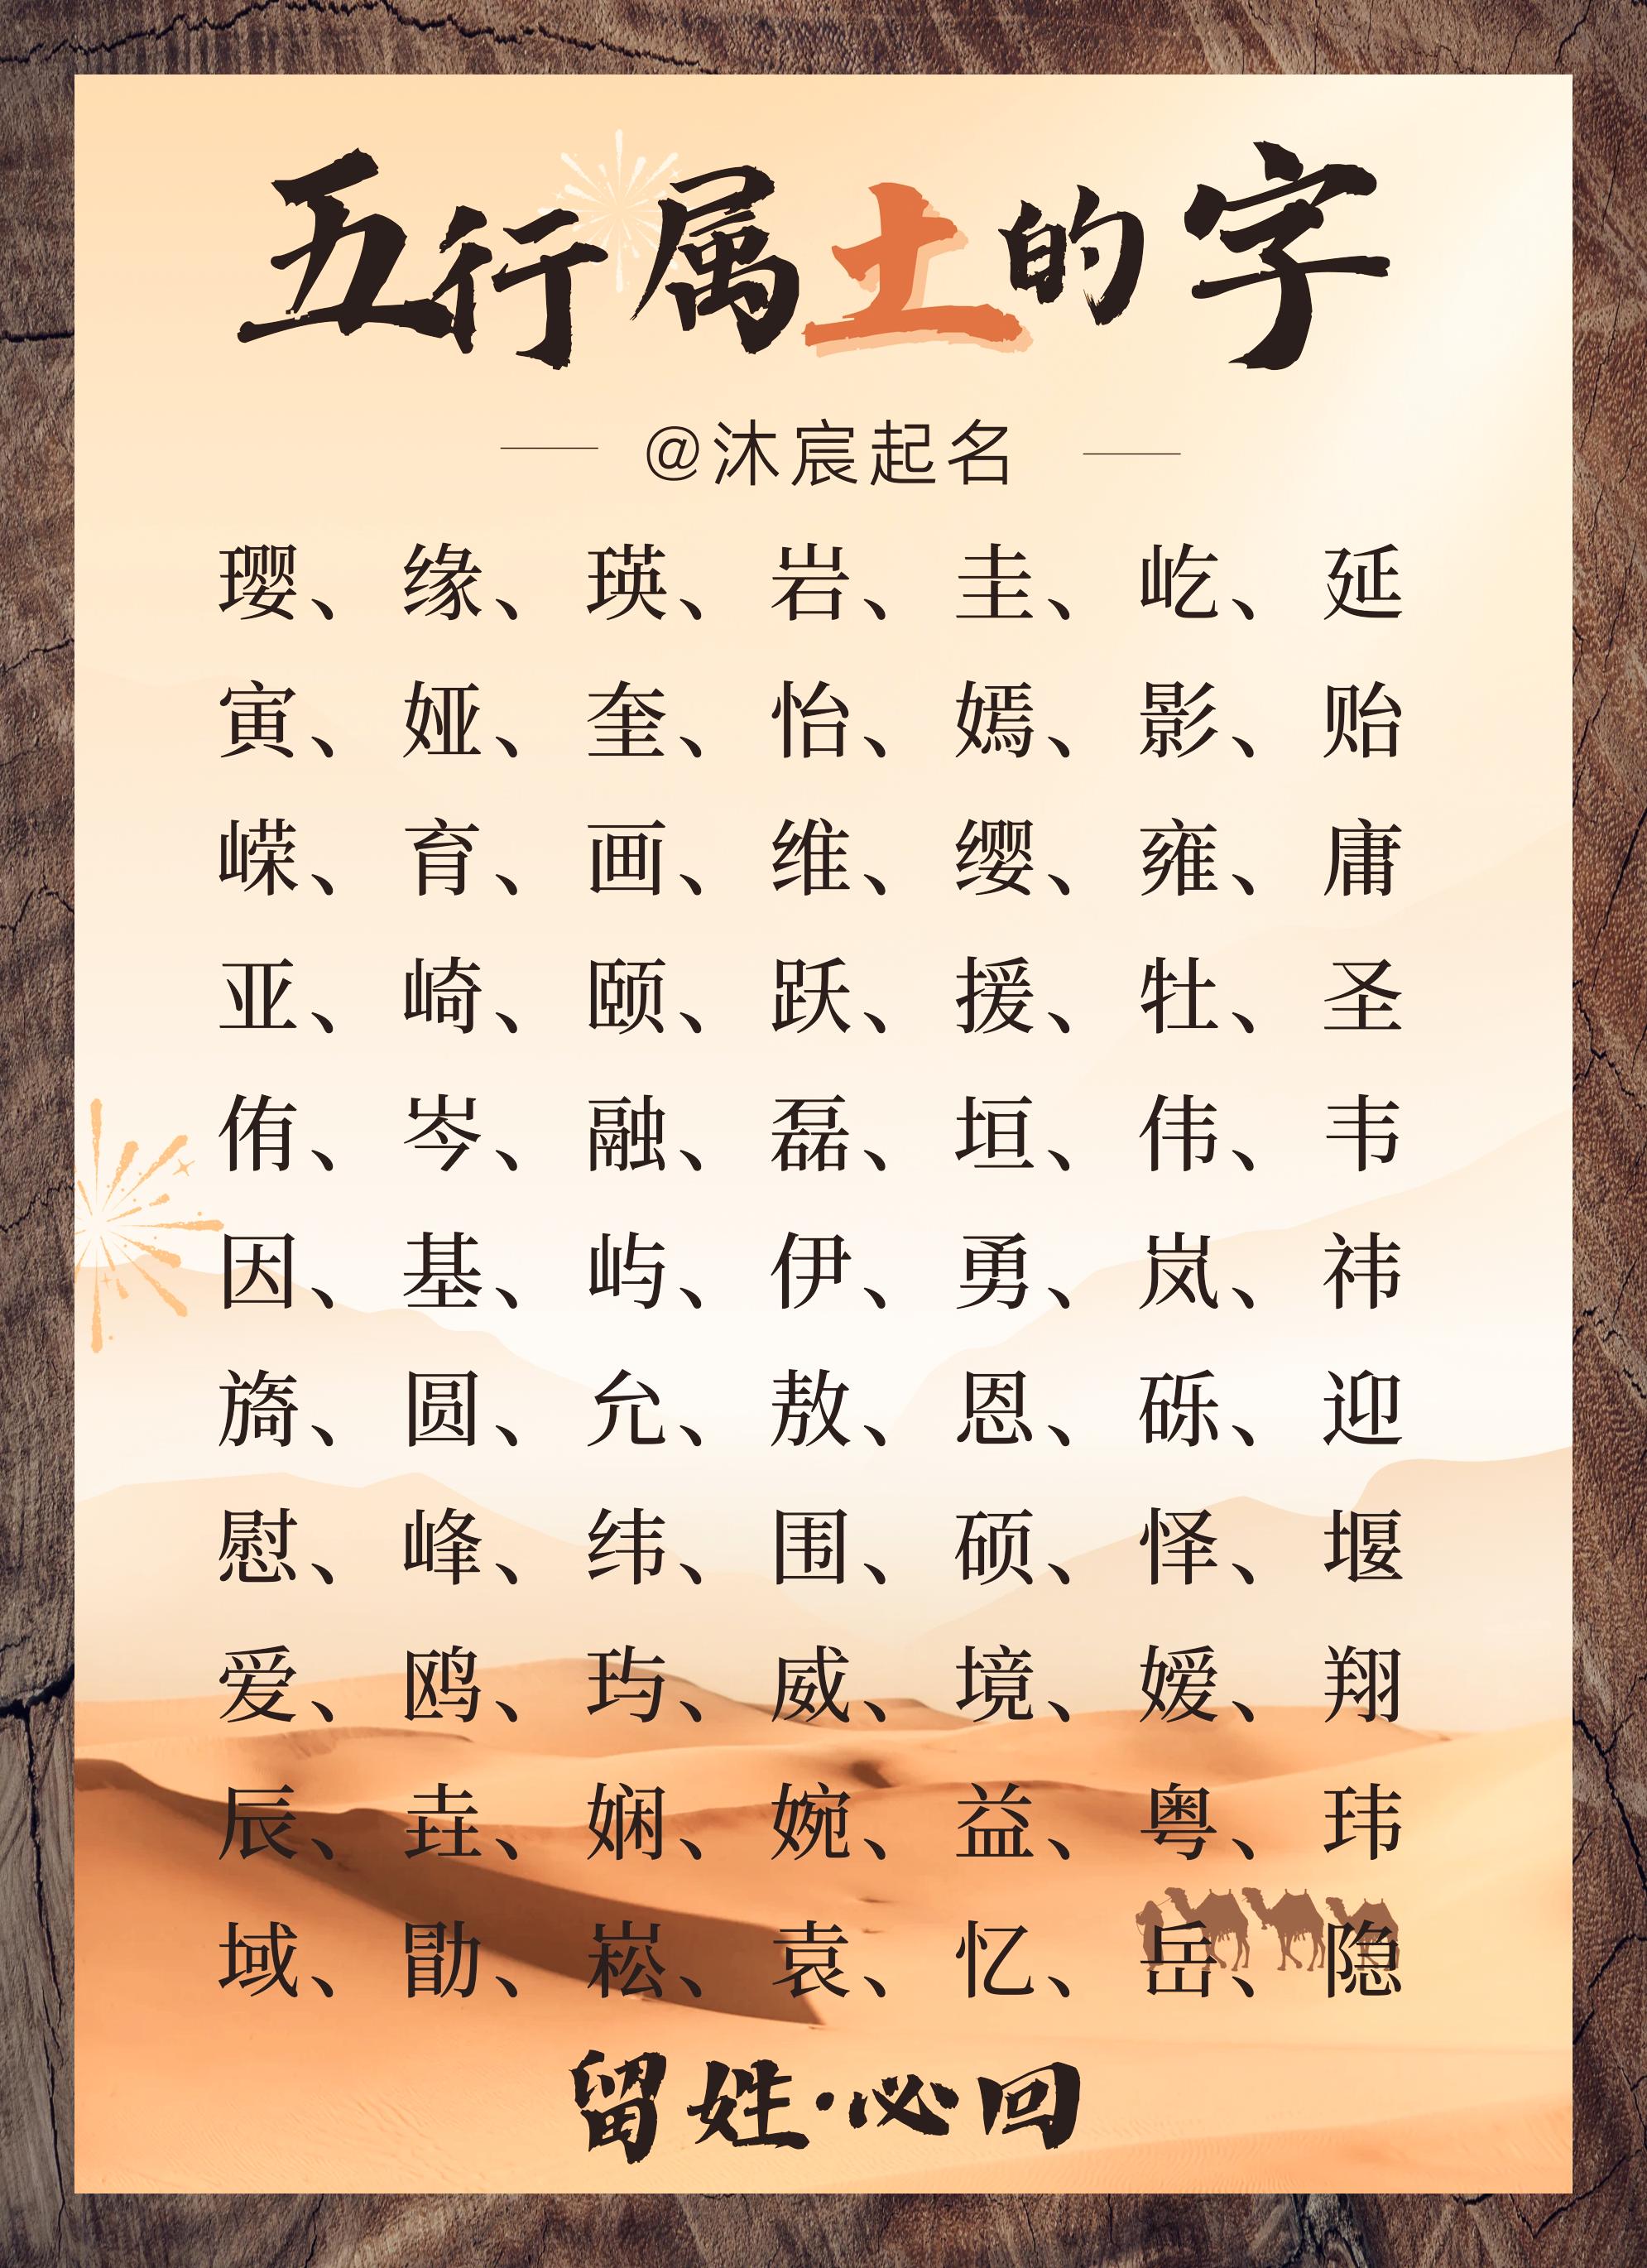 五行属土的字
@沐宸起名
璎、缘、瑛、岩、圭、屹、延
寅、娅、奎、怡、嫣、影、贻
嵘、育、画、维、缨、雍、庸
亚、崎、颐、跃、援、牡、圣
侑、岑、融、磊、垣、伟、韦
因、基、屿、伊、勇、岚、祎
旖、圆、允、敖、恩、砾、迎
慰、峰、纬、围、硕、怿、堰
爱、鸥、玙、威、境、嫒、翔
辰、垚、娴、婉、益、粤、玮
域、勖、崧、袁、忆、岳、隐
留姓·必回